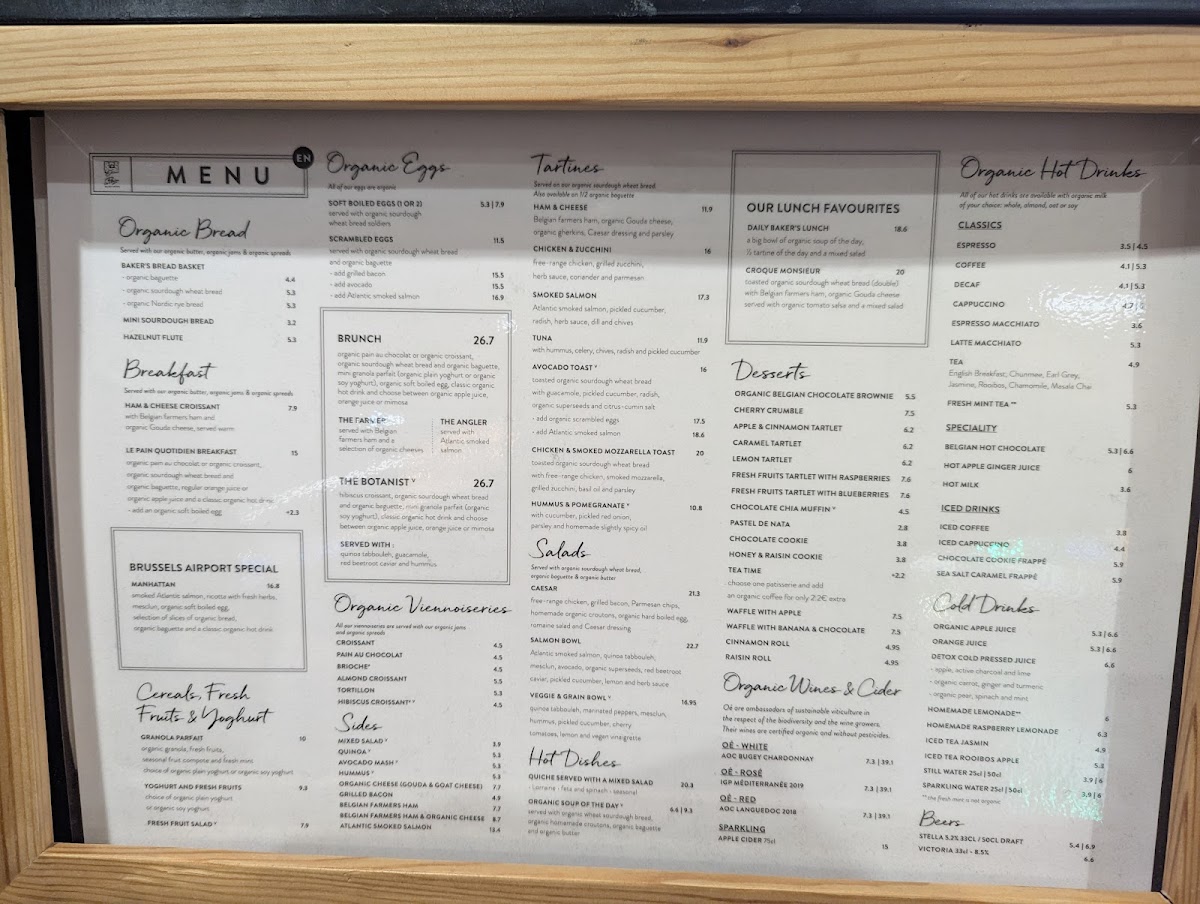 MENU
EN
Organic Bread
Served with our organic butter, organic jams & organic spreads
BAKER'S BREAD BASKET
- organic baguette 4.4
- organic sourdough wheat bread 5.3
- organic Nordic rye bread 5.3
MINI SOURDOUGH BREAD 3.2
HAZELNUT FLUTE 5.3
Breakfast
Served with our organic butter, organic jams & organic spreads
HAM & CHEESE CROISSANT 7.9
with Belgian farmers ham and
organic Gouda cheese, served warm
LE PAIN QUOTIDIEN BREAKFAST 15
organic pain au chocolat or organic croissant,
organic sourdough wheat bread and
organic baguette, regular orange juice or
organic apple juice and a classic organic hot drink
- add an organic soft boiled egg +2.3
BRUSSELS AIRPORT SPECIAL
MANHATTAN 16.8
smoked Atlantic salmon, ricotta with fresh herbs,
mesclun, organic soft boiled egg,
selection of slices of organic bread,
organic baguette and a classic organic hot drink
Cereals, Fresh
Fruits & Yoghurt
GRANOLA PARFAIT 10
organic granola, fresh fruits,
seasonal fruit compote and fresh mint
choice of organic plain yoghurt or organic soy yoghurt
YOGHURT AND FRESH FRUITS 9.3
choice of organic plain yoghurt
or organic soy yoghurt
FRESH FRUIT SALAD ᵛ 7.9
Organic Eggs
All of our eggs are organic
SOFT BOILED EGGS (1 OR 2) 5.3 | 7.9
served with organic sourdough
wheat bread soldiers
SCRAMBLED EGGS 11.5
served with organic sourdough wheat bread
and organic baguette
- add grilled bacon 15.5
- add avocado 15.5
- add Atlantic smoked salmon 16.9
BRUNCH 26.7
organic pain au chocolat or organic croissant,
organic sourdough wheat bread and organic baguette,
mini granola parfait (organic plain yoghurt or organic
soy yoghurt), organic soft boiled egg, classic organic
hot drink and choose between organic apple juice,
orange juice or mimosa
THE FARMER
served with Belgian
farmers ham and a
selection of organic cheeses
THE ANGLER
served with
Atlantic smoked
salmon
THE BOTANIST ᵛ 26.7
hibiscus croissant, organic sourdough wheat bread
and organic baguette, mini granola parfait (organic
soy yoghurt), classic organic hot drink and choose
between organic apple juice, orange juice or mimosa
SERVED WITH :
quinoa tabbouleh, guacamole,
red beetroot caviar and hummus
Organic Viennoiseries
All our viennoiseries are served with our organic jams
and organic spreads
CROISSANT 4.5
PAIN AU CHOCOLAT 4.5
BRIOCHE* 4.5
ALMOND CROISSANT 5.5
TORTILLON 5.3
HIBISCUS CROISSANT* ᵛ 4.5
Sides
MIXED SALAD ᵛ 3.9
QUINOA ᵛ 5.3
AVOCADO MASH ᵛ 5.3
HUMMUS ᵛ 5.3
ORGANIC CHEESE (GOUDA & GOAT CHEESE) 7.7
GRILLED BACON 4.9
BELGIAN FARMERS HAM 7.7
BELGIAN FARMERS HAM & ORGANIC CHEESE 8.7
ATLANTIC SMOKED SALMON 13.4
Tartines
Served on our organic sourdough wheat bread.
Also available on 1/2 organic baguette
HAM & CHEESE 11.9
Belgian farmers ham, organic Gouda cheese,
organic gherkins, Caesar dressing and parsley
CHICKEN & ZUCCHINI 16
free-range chicken, grilled zucchini,
herb sauce, coriander and parmesan
SMOKED SALMON 17.3
Atlantic smoked salmon, pickled cucumber,
radish, herb sauce, dill and chives
TUNA 11.9
with hummus, celery, chives, radish and pickled cucumber
AVOCADO TOAST ᵛ 16
toasted organic sourdough wheat bread
with guacamole, pickled cucumber, radish,
organic superseeds and citrus-cumin salt
- add organic scrambled eggs 17.5
- add Atlantic smoked salmon 18.6
CHICKEN & SMOKED MOZZARELLA TOAST 20
toasted organic sourdough wheat bread
with free-range chicken, smoked mozzarella,
grilled zucchini, basil oil and parsley
HUMMUS & POMEGRANATE ᵛ 10.8
with cucumber, pickled red onion,
parsley and homemade slightly spicy oil
Salads
Served with organic sourdough wheat bread,
organic baguette & organic butter
CAESAR 21.3
free-range chicken, grilled bacon, Parmesan chips,
homemade organic croutons, organic hard boiled egg,
romaine salad and Caesar dressing
SALMON BOWL 22.7
Atlantic smoked salmon, quinoa tabbouleh,
mesclun, avocado, organic superseeds, red beetroot
caviar, pickled cucumber, lemon and herb sauce
VEGGIE & GRAIN BOWL ᵛ 16.95
quinoa tabbouleh, marinated peppers, mesclun,
hummus, pickled cucumber, cherry
tomatoes, lemon and vegan vinaigrette
Hot Dishes
QUICHE SERVED WITH A MIXED SALAD 20.3
- Lorraine - feta and spinach - seasonal
ORGANIC SOUP OF THE DAY ᵛ 6.4 | 9.3
served with organic wheat sourdough bread,
organic homemade croutons, organic baguette
and organic butter
OUR LUNCH FAVOURITES
DAILY BAKER'S LUNCH 18.6
a big bowl of organic soup of the day,
½ tartine of the day and a mixed salad
CROQUE MONSIEUR 20
toasted organic sourdough wheat bread (double)
with Belgian farmers ham, organic Gouda cheese
served with organic tomato salsa and a mixed salad
Desserts
ORGANIC BELGIAN CHOCOLATE BROWNIE 5.5
CHERRY CRUMBLE 7.5
APPLE & CINNAMON TARTLET 6.2
CARAMEL TARTLET 6.2
LEMON TARTLET 6.2
FRESH FRUITS TARTLET WITH RASPBERRIES 7.6
FRESH FRUITS TARTLET WITH BLUEBERRIES 7.6
CHOCOLATE CHIA MUFFIN ᵛ 4.5
PASTEL DE NATA 2.8
CHOCOLATE COOKIE 3.8
HONEY & RAISIN COOKIE 3.8
TEA TIME +2.2
choose one patisserie and add
an organic coffee for only 2.2€ extra
WAFFLE WITH APPLE 7.5
WAFFLE WITH BANANA & CHOCOLATE 7.5
CINNAMON ROLL 4.95
RAISIN ROLL 4.95
Organic Wines & Cider
Oé are ambassadors of sustainable viticulture in
the respect of the biodiversity and the wine growers.
Their wines are certified organic and without pesticides.
OÉ - WHITE
AOC BUGEY CHARDONNAY 7.3 | 39.1
OÉ - ROSÉ
IGP MÉDITERRANÉE 2019 7.3 | 39.1
OÉ - RED
AOC LANGUEDOC 2018 7.3 | 39.1
SPARKLING
APPLE CIDER 75cl 15
Organic Hot Drinks
All of our hot drinks are available with organic milk
of your choice: whole, almond, oat or soy
CLASSICS
ESPRESSO 3.5 | 4.5
COFFEE 4.1 | 5.3
DECAF 4.1 | 5.3
CAPPUCCINO 4.7 |
ESPRESSO MACCHIATO 3.6
LATTE MACCHIATO 5.3
TEA 4.9
English Breakfast, Chunmee, Earl Grey,
Jasmine, Rooibos, Chamomile, Masala Chai
FRESH MINT TEA ** 5.3
SPECIALITY
BELGIAN HOT CHOCOLATE 5.3 | 6.6
HOT APPLE GINGER JUICE 6
HOT MILK 3.6
ICED DRINKS
ICED COFFEE 3.8
ICED CAPPUCCINO 4.4
CHOCOLATE COOKIE FRAPPÉ 5.9
SEA SALT CARAMEL FRAPPÉ 5.9
Cold Drinks
ORGANIC APPLE JUICE 5.3 | 6.6
ORANGE JUICE 5.3 | 6.6
DETOX COLD PRESSED JUICE 6.6
- apple, active charcoal and lime
- organic carrot, ginger and turmeric
- organic pear, spinach and mint
HOMEMADE LEMONADE** 6
HOMEMADE RASPBERRY LEMONADE 6.3
ICED TEA JASMIN 4.9
ICED TEA ROOIBOS APPLE 5.3
STILL WATER 25cl | 50cl 3.9 | 6
SPARKLING WATER 25cl | 50cl 3.9 | 6
**the fresh mint is not organic
Beers
STELLA 5.2% 33CL / 50CL DRAFT 5.4 | 6.9
VICTORIA 33cl - 8.5% 6.6